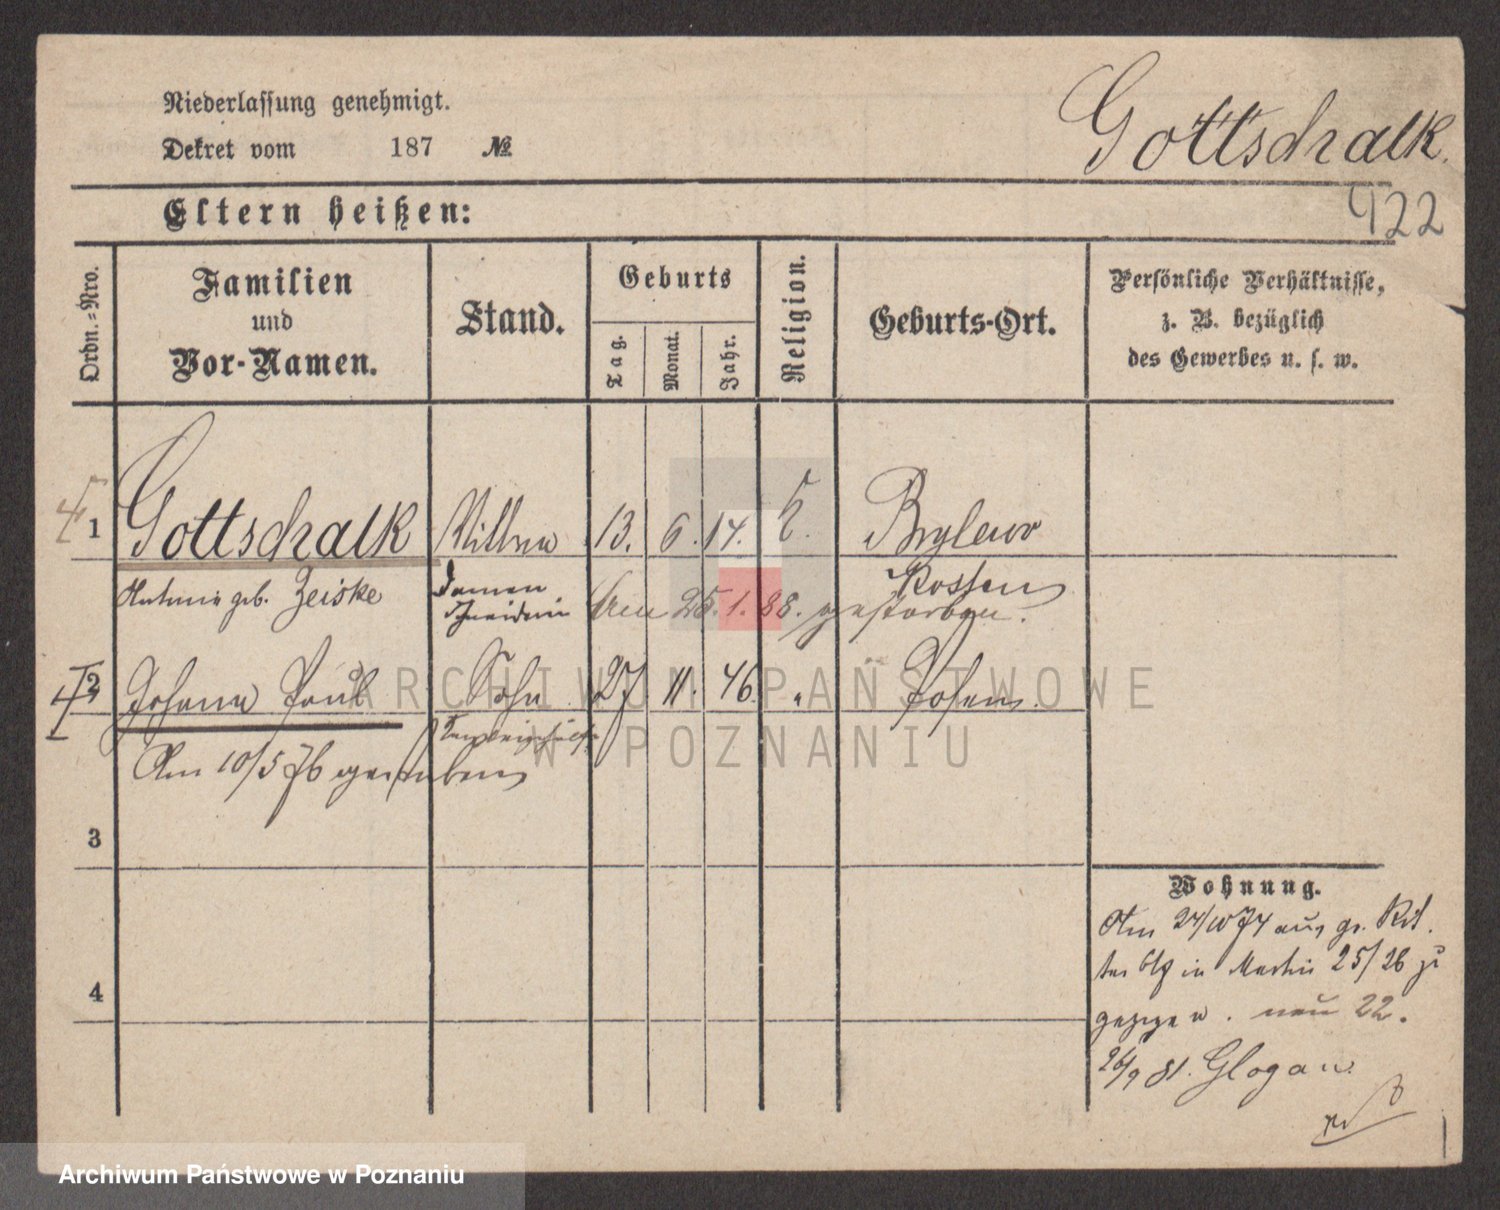 Niederlassung genehmigt.
Dekret vom 187 №
Gottschalk.
922
Eltern heißen:
Ordn.=Nro.
Familien
und
Vor-Namen.
Stand.
Geburts
Tag.
Monat.
Jahr.
Religion.
Geburts-Ort.
Persönliche Verhältnisse,
z. B. bezüglich
des Gewerbes u. s. w.
1 Gottschalk Wittwe 13. 6. 14. K. Brylewo
geb. Zeiske Damen Kosten
schneiderin Am 25.1.88. gestorben.
2 Johann Paul Sohn 27 11. 46. " Posen.
Am 10/5 76 gestorben
3
4
Wohnung.
Am 24/10 74 aus gr. Rit-
ter in Martin 25/26 zu
gezogen. neu 22.
26/9 81. Glogau.
ARCHIWUM PAŃSTWOWE
W POZNANIU
Archiwum Państwowe w Poznaniu